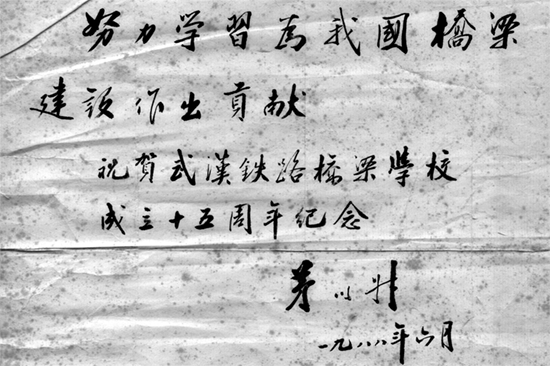 努力学習為我國橋梁
建設作出貢献
祝賀武漢鉄路橋梁學校
成立十五周年纪念
茅以升
一九八八年六月